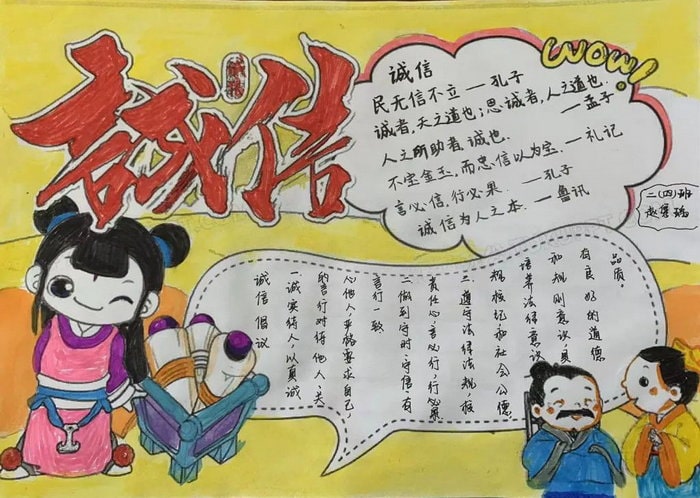 誠信
诚信
WOW!
诚信
民无信不立 — 孔子
诚者,天之道也;思诚者,人之道也.
— 孟子
人之所助者,诚也.
不宝金玉,而忠信以为宝. — 礼记
言必信,行必果. — 孔子
诚信为人之本. — 鲁讯
二(四)班
诚信倡议
一诚实待人,以真诚
的言行对待他人,关
心他人平格要求自己
言行一致
二做到守时.守信.有
责任心,言必行,行必果
三.遵守法律法规,校
规校记和社会公德
培养法律意识
和规则意识具
有良好的道德
品质。